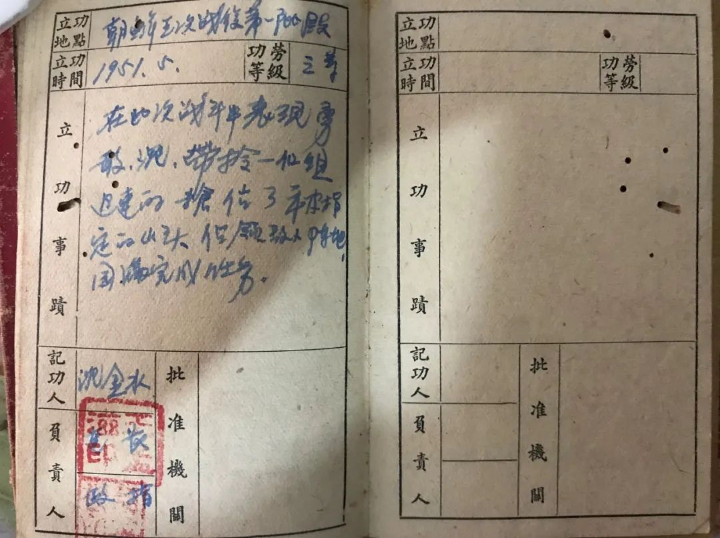 立功地點 朝鲜五次战役第一阶段
立功時間 1951.5. 功勞等級 三等
立功事蹟
在此次战斗中表现勇
敢、沉、带拎一位组
迅速的 抢占了
定的山头 占领敌人阵地,
园滿完成任务.
記功人 沈金水
負責人 連 长
政 指
批准機關
立功地點
立功時間 功勞等級
立功事蹟
記功人
負責人
批准機關